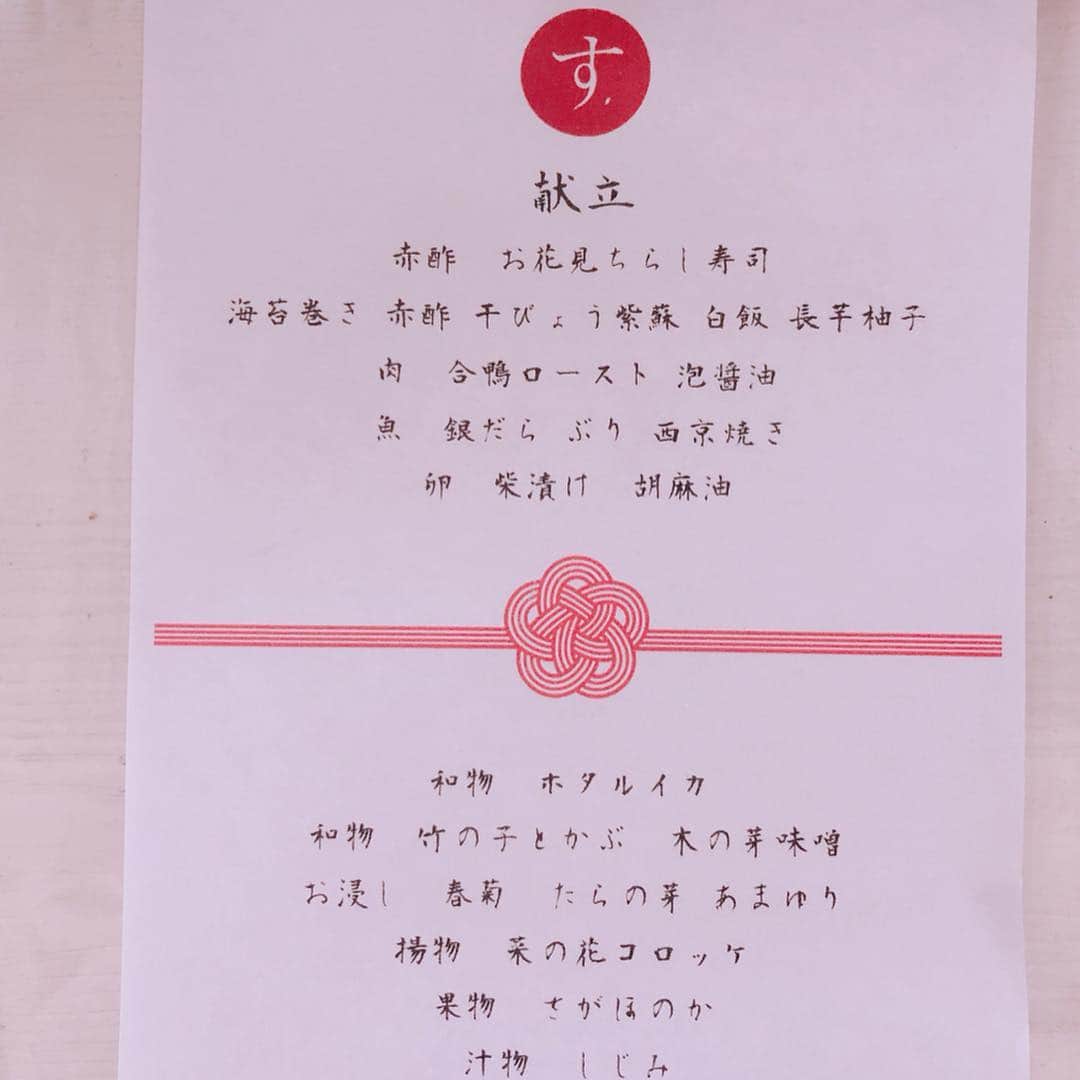 す.
献立
赤酢　お花見ちらし寿司
海苔巻き 赤酢 干びょう紫蘇 白飯 長芋柚子
肉　合鴨ロースト 泡醤油
魚　銀だら ぶり 西京焼き
卵　柴漬け　胡麻油
和物　ホタルイカ
和物　竹の子とかぶ　木の芽味噌
お浸し　春菊　たらの芽 あまゆり
揚物　菜の花コロッケ
果物　さがほのか
汁物　しじみ